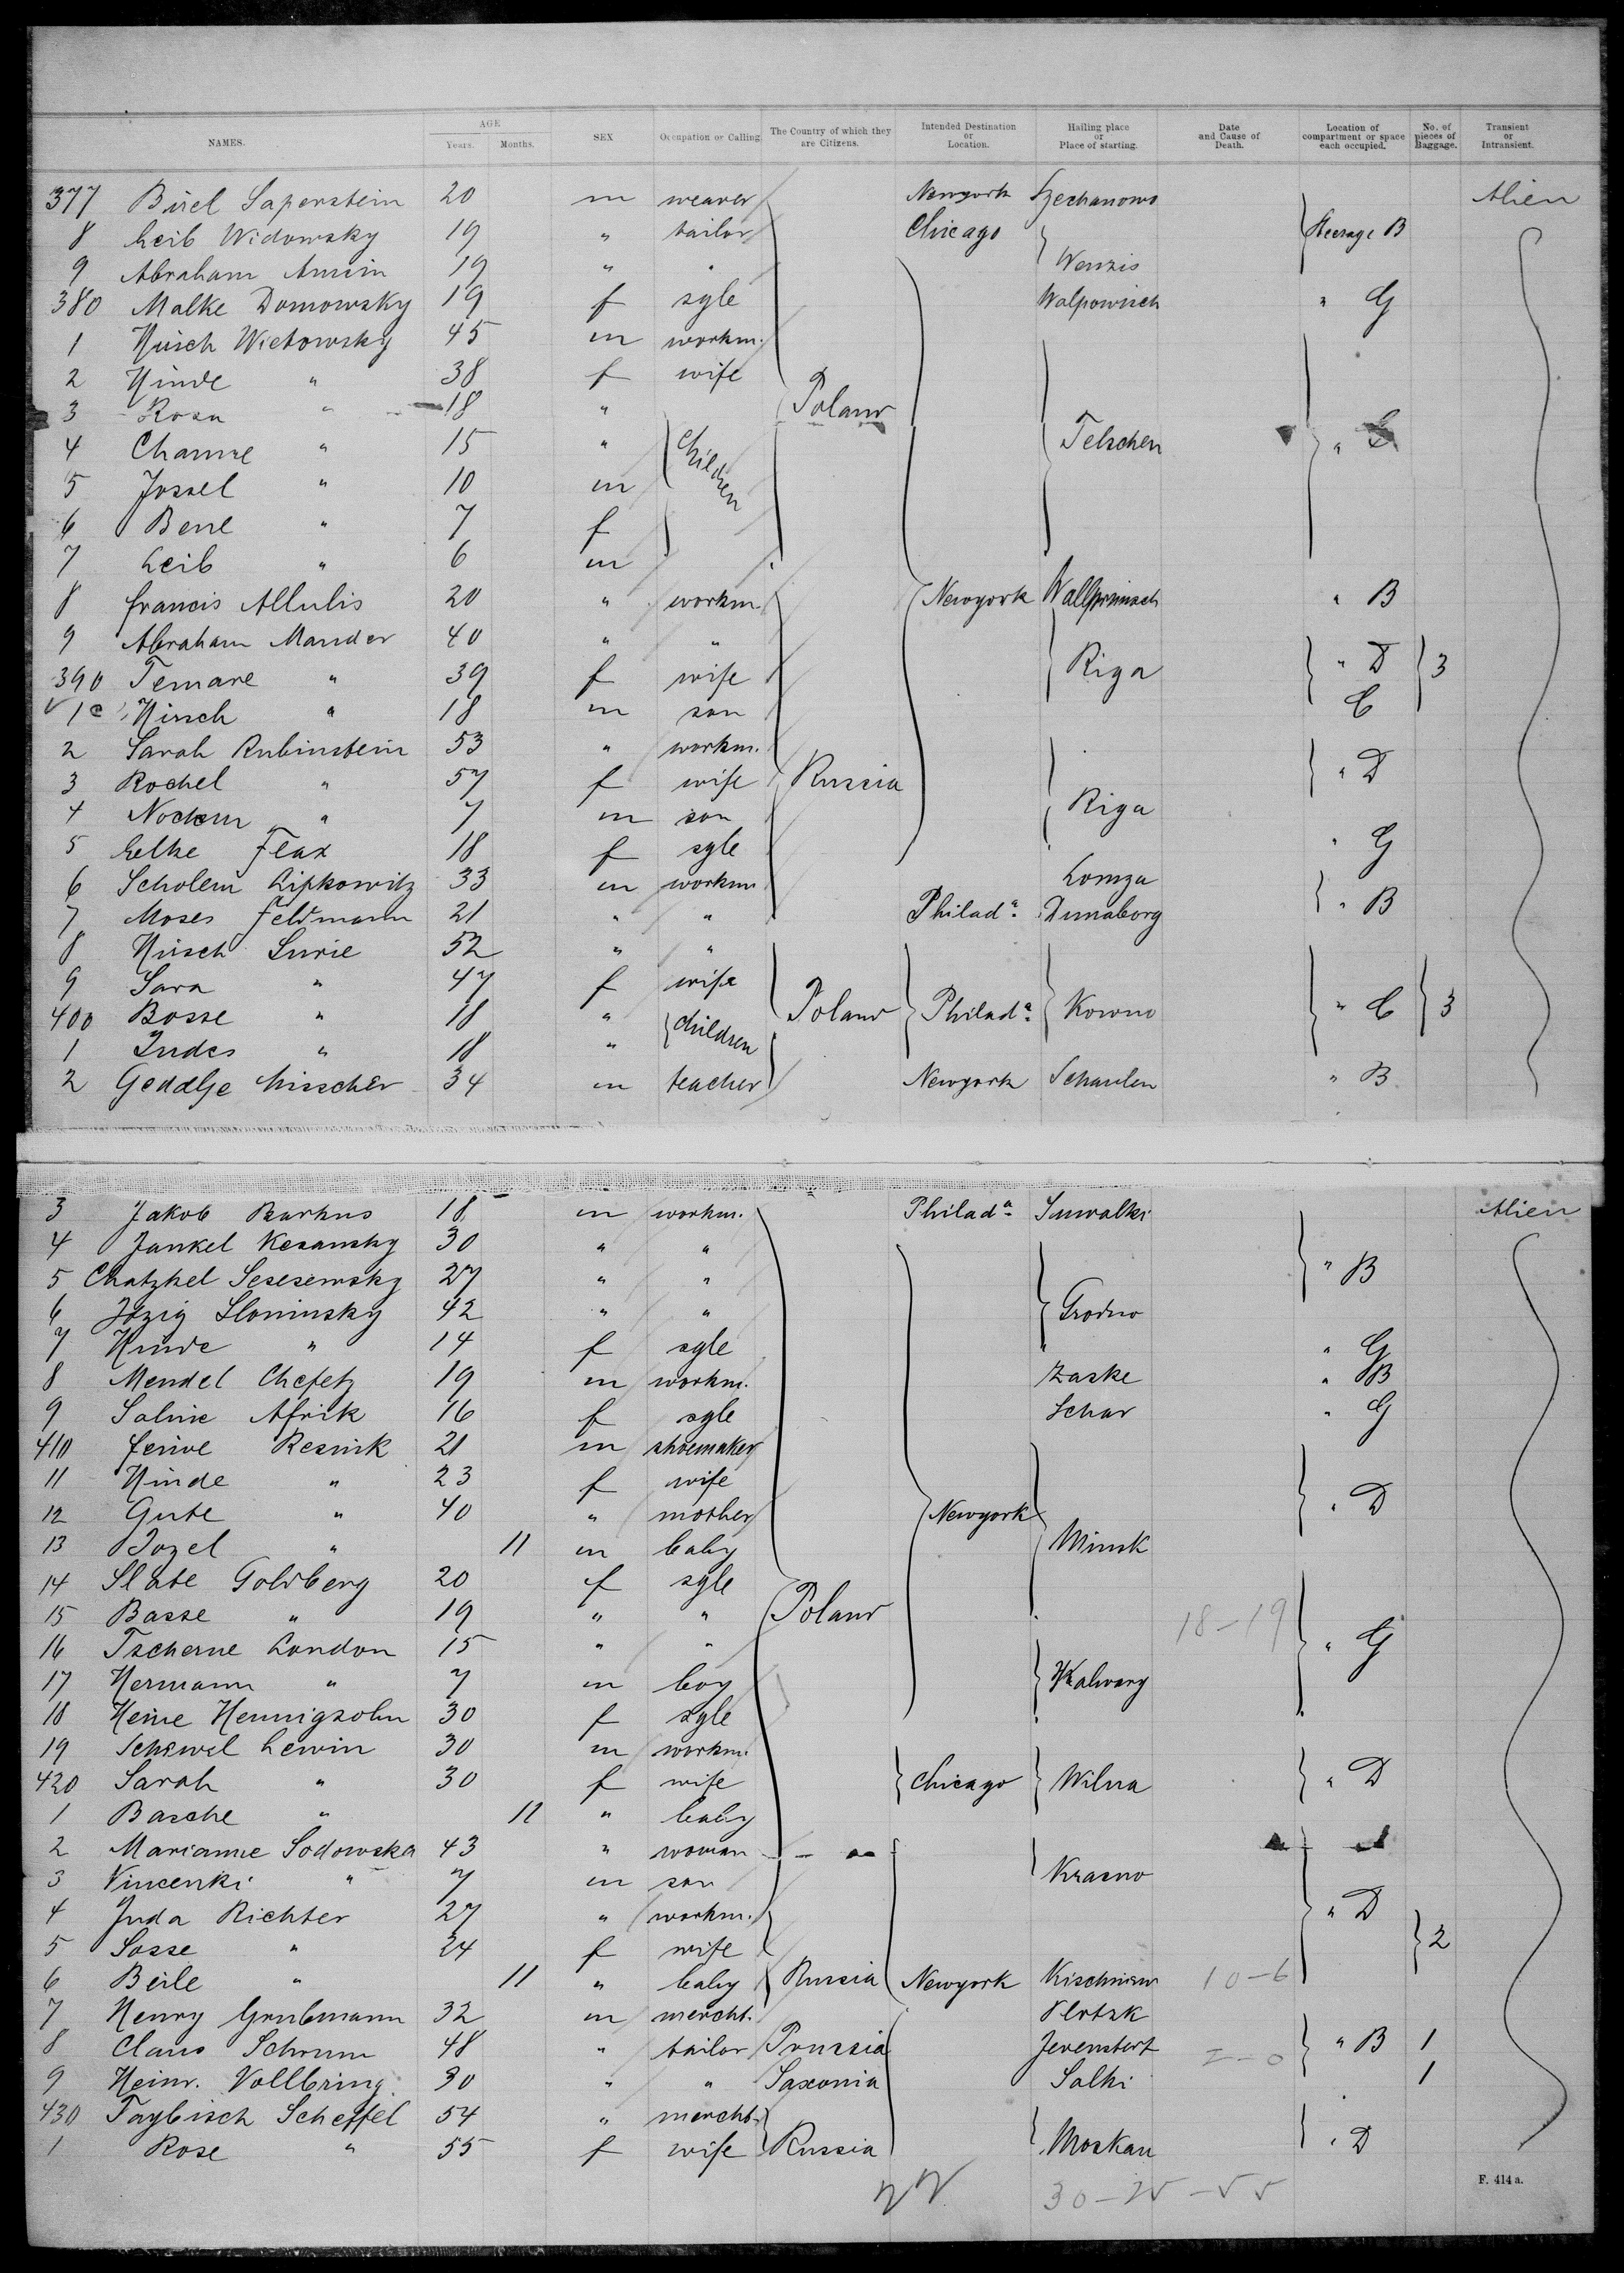 NAMES. AGE Years. Months. SEX Occupation or Calling. The Country of which they are Citizens. Intended Destination or Location. Hailing place or Place of starting. Date and Cause of Death. Location of compartment or space each occupied. No. of pieces of Baggage. Transient or Intransient.
377 Birel Saperstein 20 m weaver Newyork Szechanowo Alien
8 Leib Widowsky 19 " tailor Chicago Steerage B
9 Abraham 19 " " Wenzis
380 Malke Domowsky 19 f sgle Walpowisch " G
1 Hirsch Wietowsky 45 m workm.
2 Hinde " 38 f wife
3 Rosa " 18 " Poland
4 Channe " 15 " Children Telschen "
5 Jossel " 10 m
6 Bene " 7 f
7 Leib " 6 m
8 francis Allulis 20 " workm Newyork " B
9 Abraham Mander 40 " "
390 Temare " 39 f wife Riga " D 3
1 Hirsch " 18 m son C
2 Sarah Rubinstein 53 " workm.
3 Rochel " 57 f wife Russia " D
4 Nochem " 7 m son Riga
5 Elke Flax 18 f sgle " G
6 Scholem Lipkowitz 33 m workm Lomza
7 Moses Feldmann 21 " " Philada. Dunaborg " B
8 Hirsch Lurie 52 " "
9 Sara " 47 f wife
400 Bosse " 18 " children Poland Philada. Kowno " C 3
1 Judes " 18 "
2 Geddlje Misscher 34 m teacher Newyork Schaulen " B
3 Jakob Barkus 18 m workm. Philada. Suwalki Alien
4 Jankel Kesansky 30 " "
5 Chatzkel Sesesewsky 27 " " " B
6 Itzig Sloninsky 42 " " Grodno
7 Hinde " 14 f sgle " G
8 Mendel Chefetz 19 m workm. Zaske " B
9 Salnie Afrik 16 f sgle Schar " G
410 Resnik 21 m shoemaker
11 Hinde " 23 f wife
12 Gute " 40 " mother Newyork " D
13 Jozel " 11 m baby Minsk
14 Slate Goldberg 20 f sgle
15 Basse " 19 " " Poland 18-19
16 Tscherne London 15 " " " G
17 Hermann " 7 m boy Kalwary
18 Heine Hennigsohn 30 f sgle
19 Schewel Lewin 30 m workm.
420 Sarah " 30 f wife Chicago Wilna " D
1 Basche " 11 " baby
2 Marianne Sodowska 43 " woman
3 Vincenki " 7 m son Krasno
4 Juda Richter 27 " workm. " D
5 Sosse " 24 f wife 2
6 Beile " 11 " baby Russia Newyork Kischinew 10-6
7 Henry Grubmann 32 m mercht. Plotzk
8 Claus Schrum 48 " tailor Prussia Jevenstert " B 1
9 Heinr. Vollbring 30 " " Saxonia Salki 1
430 Taybisch Scheffel 54 " mercht.
1 Rose " 55 f wife Russia Moskau " D
F. 414 a.